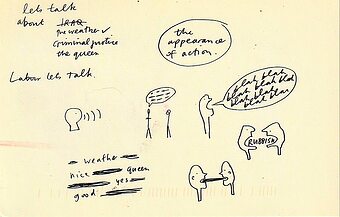 lets talk
about IRAQ
the weather ✓
criminal justice
the queen
the
appearance
of action.
Labor lets talk.
blah blah
blah blah blah
blah blah blah
blah b
RUBBISH
weather
nice queen
yes
good